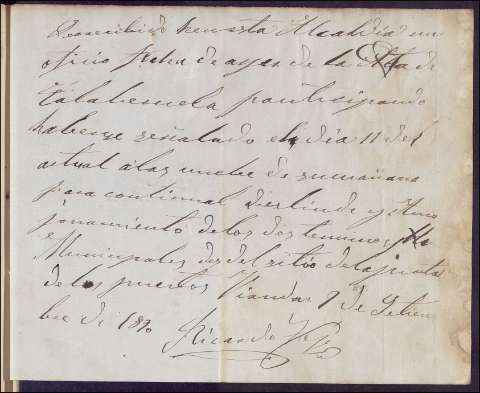 recibido en esta Alcaldia un
oficio fecha de ayer de la de
Talaberuela participando
haberse señalado el dia 11 del
actual a las nuebe de su mañana
para continuar deslinde y Amo
jonamiento de los dos terminos
Municipales desdel sitio de la junta
de los puertos Viandar 9 de Setiem
bre de 1890
Ricardo